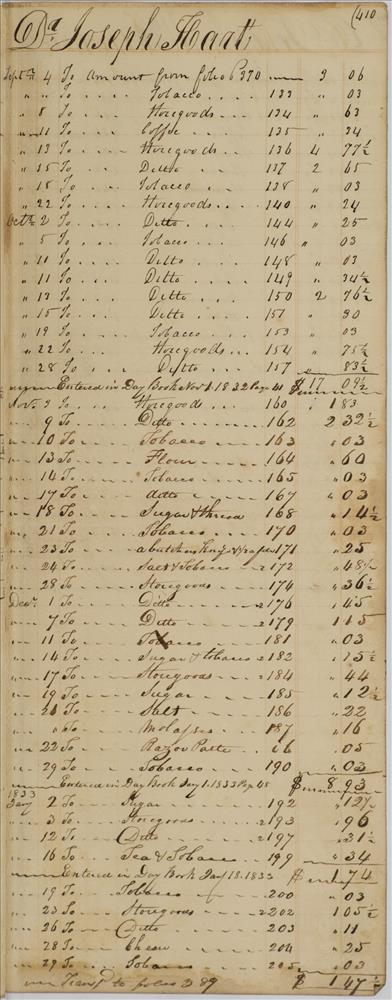 (410
Dr. Joseph Hart
Septm 4 To Amount from folio 370 3 06
" " To Tobacco 133 " 03
" 8 To Storegoods 134 " 63
" 11 To Coffee 135 " 34
" 13 To Storegoods 136 4 77½
" 15 To Ditto 137 2 65
" 18 To Tobacco 138 " 03
" 22 To Storegoods 140 " 24
Octr 2 To Ditto 144 " 25
" 5 To Tobacco 146 " 03
" 11 To Ditto 148 " 03
" 11 To Ditto 149 " 34½
" 13 To Ditto 150 2 76½
" 15 To Ditto 151 " 30
" 19 To Tobacco 153 " 03
" 22 To Storegoods 154 " 75½
" 28 To Ditto 157 " 83½
Entered in Day Book Nov 1 1832 Page 41 $ 17 09½
Nov. 3 To Storegoods 160 1 83
" 9 To Ditto 162 2 32½
" 10 To Tobacco 163 " 03
" 13 To Flour 164 " 60
" 14 To Tobacco 165 " 03
" 17 To ditto 167 " 03
" 18 To Sugar & thread 168 " 14½
" 21 To Tobacco 170 " 03
" 23 To a butchers knife & 171 " 25
" 24 To Salt & Tobacco 172 " 48½
" 28 To Storegoods 174 " 36½
Decr. 1 To Ditto 176 " 45
" 7 To Ditto 179 1 15
" 11 To Tobacco 181 " 03
" 14 To Sugar & tobacco 182 " 15½
" 17 To Storegoods 184 " 44
" 19 To Sugar 185 " 12½
" 21 To Salt 186 " 22
" " To Molasses 187 " 16
" 22 To Razor Paste " 05
" 29 To Tobacco 190 " 03
Entered in Day Book Jany 1. 1833 Page 48 $ 8 93
1833
Jany 2 To Sugar 192 " 12½
" 3 To Storegoods 193 " 96
" 12 To Ditto 197 " 31½
" 16 To Tea & Tobacco 199 " 34
Entered in Day Book Jany 18. 1833 $ 1 74
" 19 To Tobacco 200 " 03
" 23 To Storegoods 202 1 05½
" 26 To Ditto 203 " 11
" 28 To Cheese 204 " 25
" 29 To Tobacco 205 " 03
Transd to folio 89 $ 1 47½